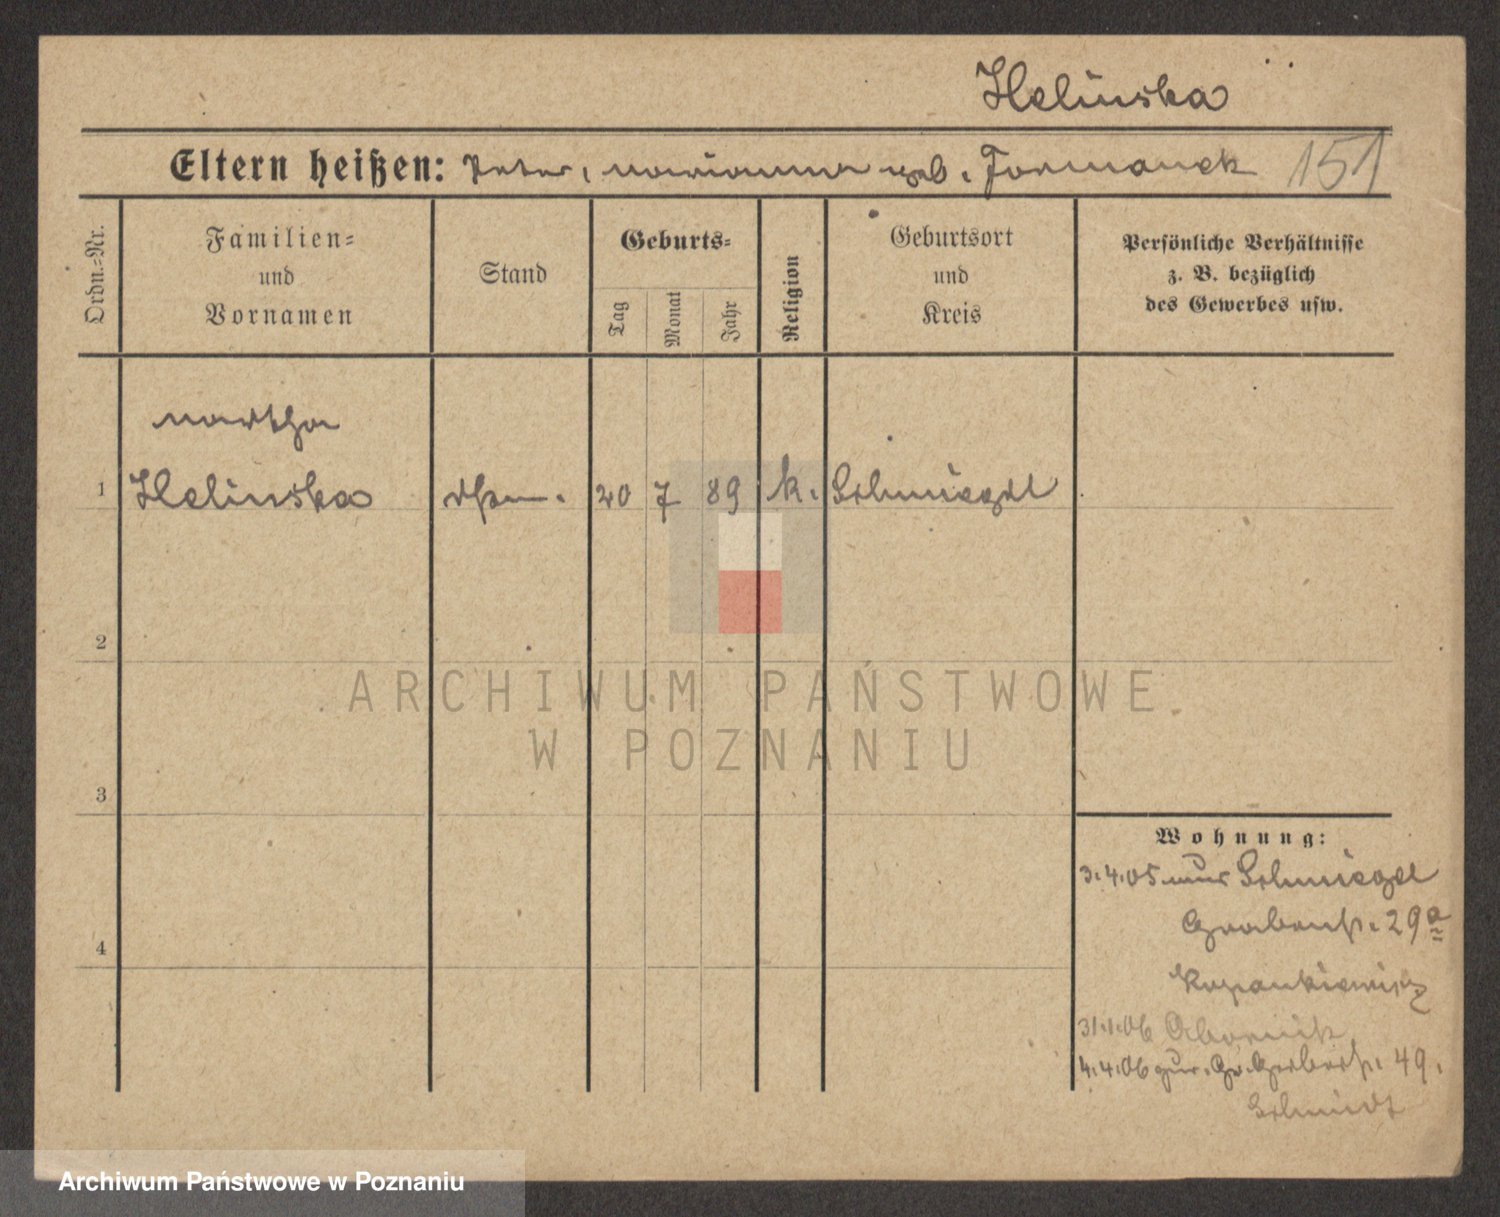 Helinska
Eltern heißen: Peter, Marianna geb. Formanek 151
Ordn.-Nr.
Familien-
und
Vornamen
Stand
Geburts-
Tag
Monat
Jahr
Religion
Geburtsort
und
Kreis
Persönliche Verhältnisse
z. B. bezüglich
des Gewerbes usw.
Martha
1 Helinska 20 7 89 k. Schmiegel
2
3
4
ARCHIWUM PAŃSTWOWE
W POZNANIU
Wohnung:
3.4.05 aus Schmiegel
Grabenstr. 29a
31.1.06 Obornik
4.4.06 zur. Gr. Gerberstr. 49.
Schmidt
Archiwum Państwowe w Poznaniu